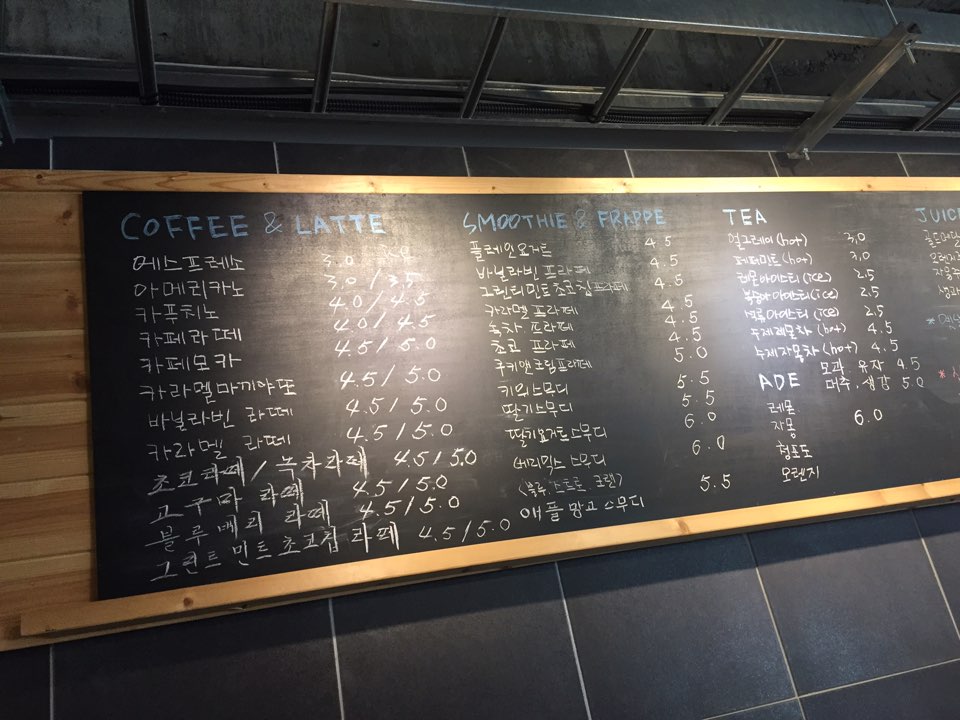 COFFEE & LATTE
에스프레소 3.0
아메리카노 3.0 / 3.5
카푸치노 4.0 / 4.5
카페라떼 4.0 / 4.5
카페모카 4.5 / 5.0
카라멜마끼아또 4.5 / 5.0
바닐라빈 라떼 4.5 / 5.0
카라멜 라떼 4.5 / 5.0
초코라떼 / 녹차라떼 4.5 / 5.0
고구마 라떼 4.5 / 5.0
블루베리 라떼 4.5 / 5.0
그린트민트초코칩라떼 4.5 / 5.0
SMOOTHIE & FRAPPE
플레인요거트 4.5
바닐라빈 프라페 4.5
그린티민트초코칩프라페 4.5
카라멜 프라페 4.5
녹차 프라페 4.5
초코 프라페 4.5
쿠키앤크림프라페 5.0
키위스무디 5.5
딸기스무디 5.5
딸기요거트스무디 6.0
베리믹스 스무디 6.0
(블루, 스트로, 크랜)
애플망고스무디 5.5
TEA
얼그레이(hot) 3.0
페퍼민트(hot) 3.0
레몬아이스티(ice) 2.5
복숭아아이스티(ice) 2.5
석류아이스티(ice) 2.5
수제레몬차(hot) 4.5
수제자몽차(hot) 4.5
모과, 유자 4.5
대추, 생강 5.0
ADE
레몬
자몽 6.0
청포도
오렌지
JUICE